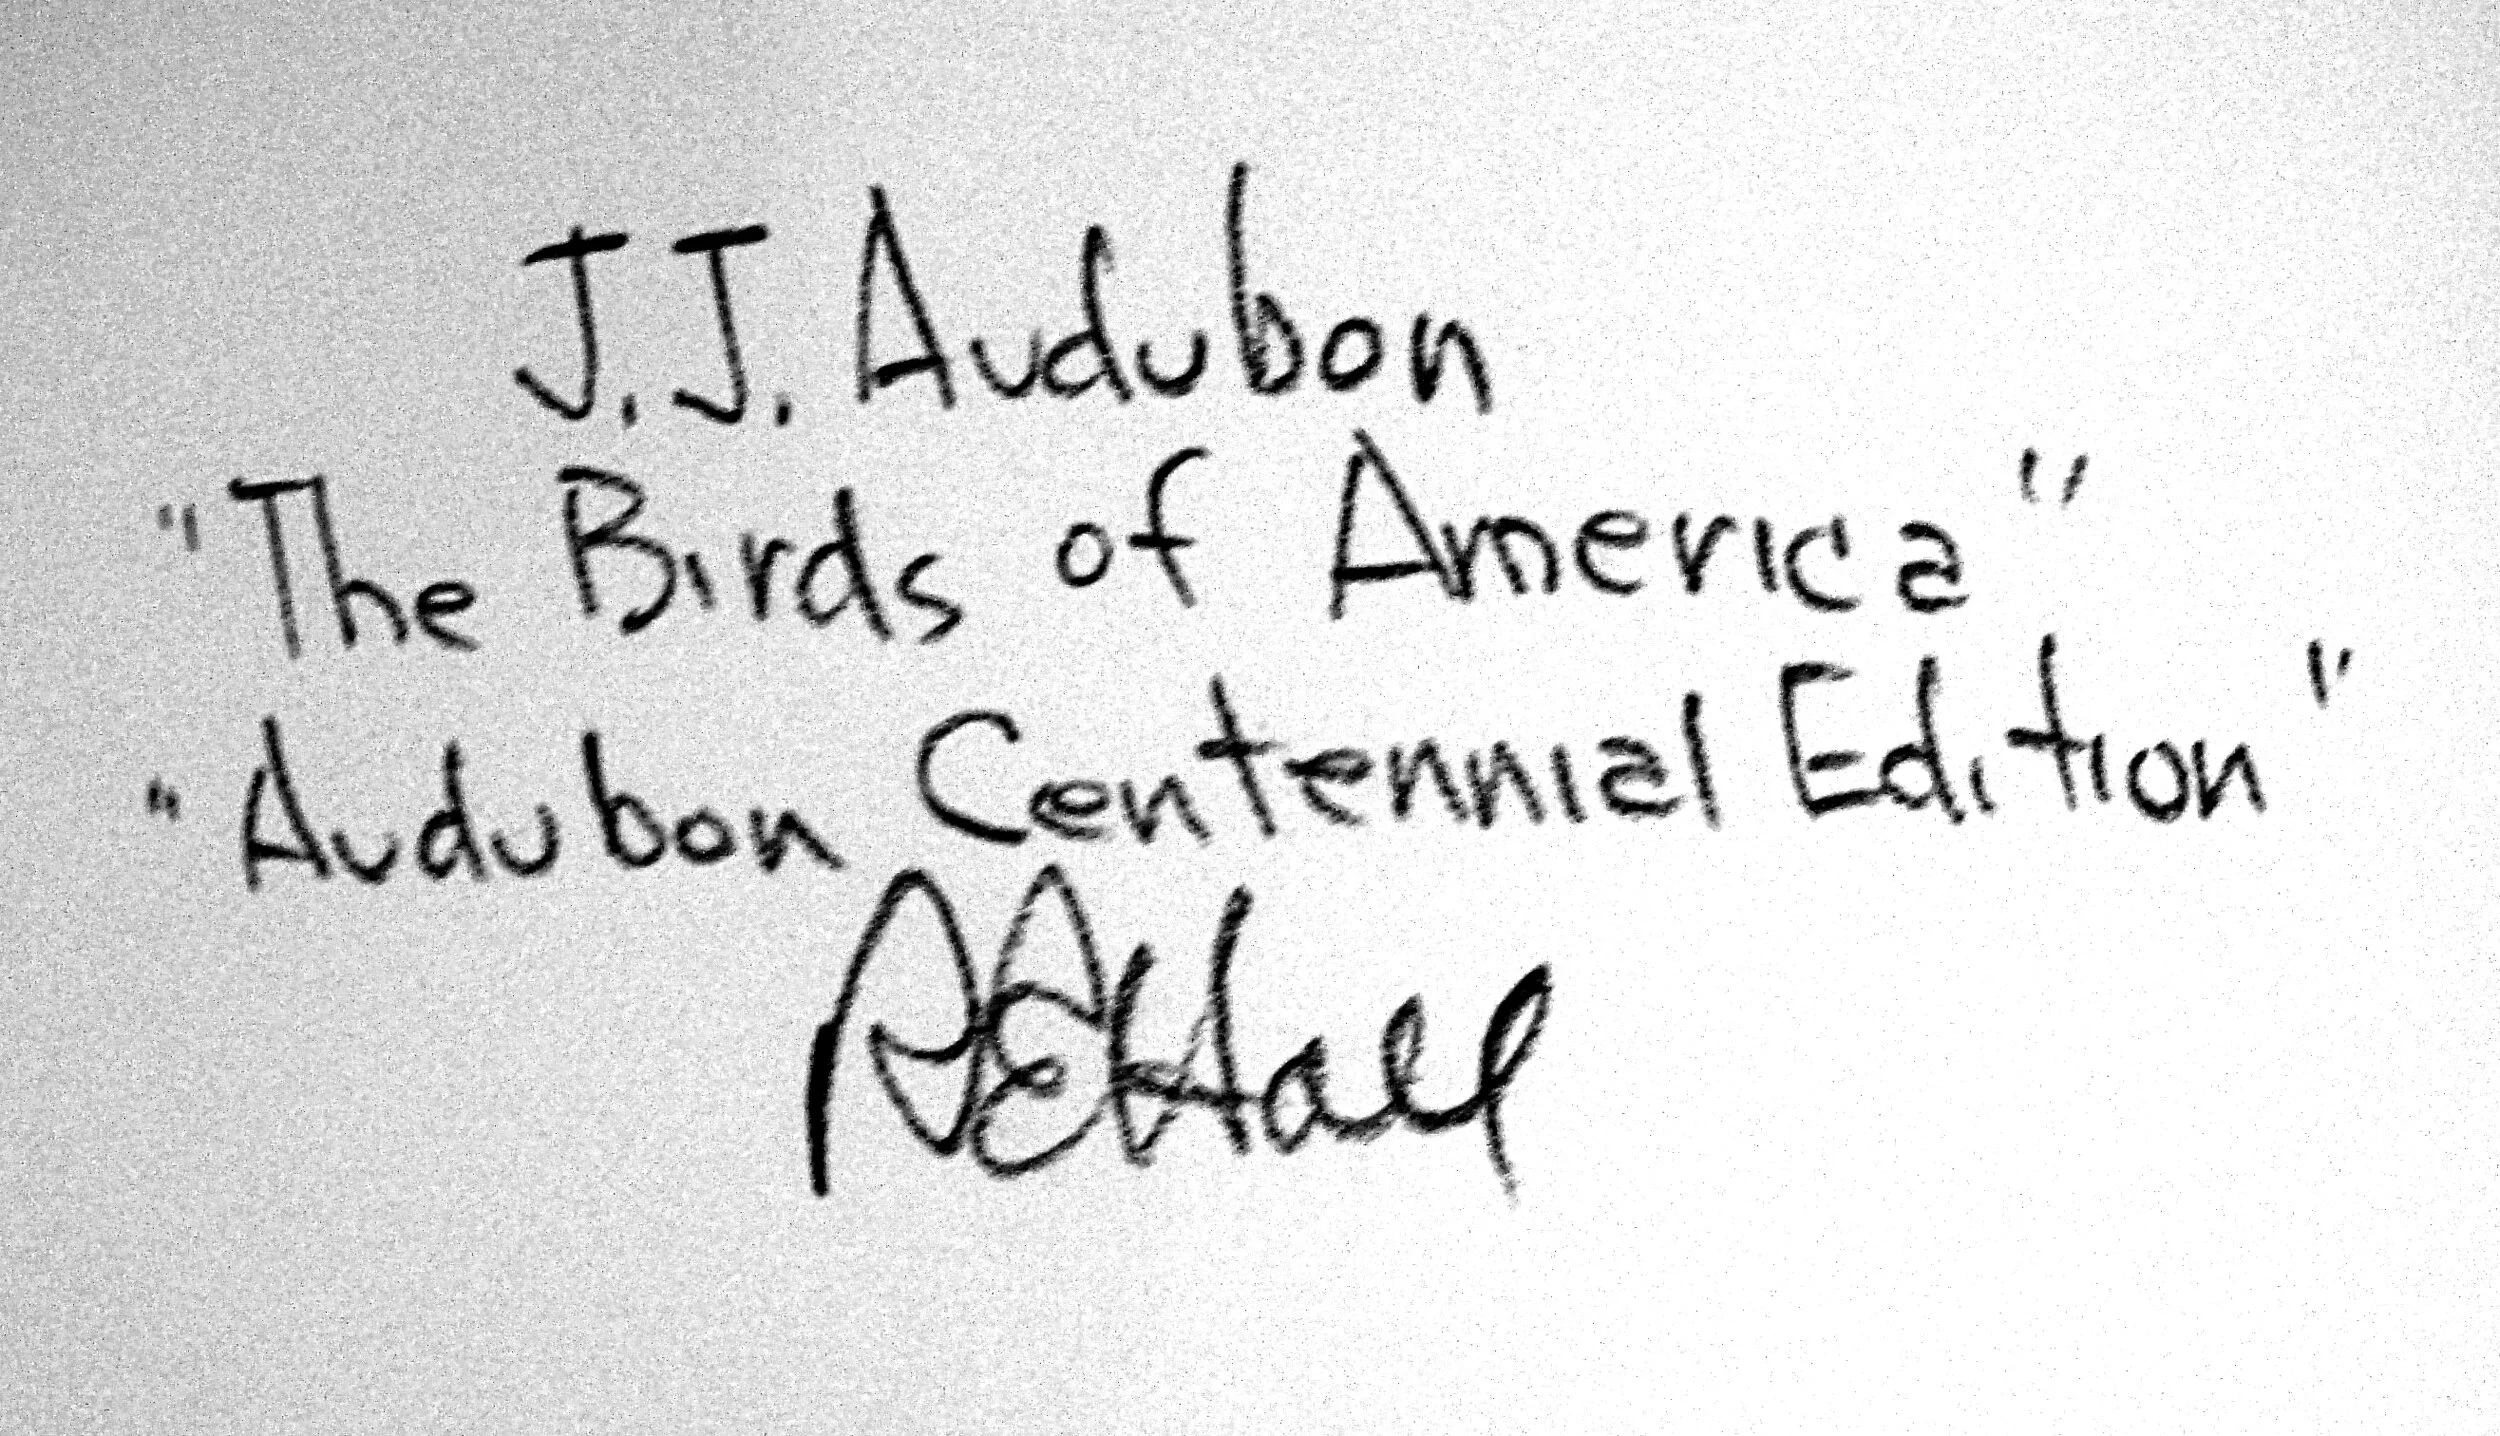 J.J. Audubon
"The Birds of America"
"Audubon Centennial Edition"